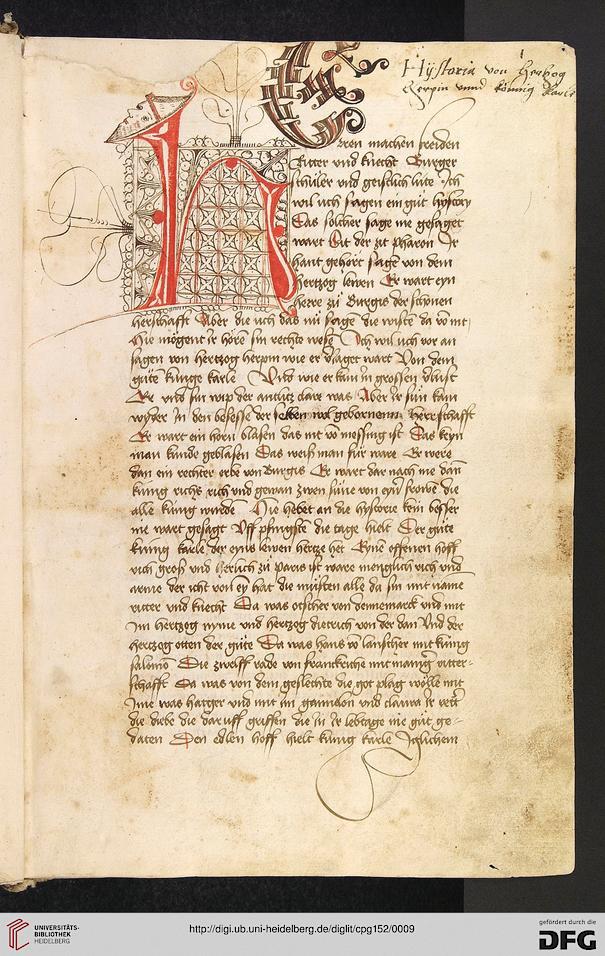 Hystoria von Hertzog
Herpin vnnd könnig Karle
HEren machen freiden
Ritter vnd knecht Burger
schuler vnd geistlich lute Ich
wil uch sagen ein gut hystory
Das solicher sage nie gesaget
wart Sit der zit pharon Ir
hant gehort sagen von dem
hertzog lewen Er wart eyn
herre zu Burgis der schonen
herschafft Aber die uch das nu sagen die wusten da von nit
Hie mögent ir horen sin rechte wese Ich wil uch vor an
sagen von hertzog herpin wie er v'taget wart Von dem
guten kunge karle Vnd wie er kam in grossen v'lust
Er vnd sin wip der antlitz clare was Aber ir sun kam
wyder In den besesse der selben wol gebornenn Herrschafft
Er wart ein horn blasen das mit von messing ist Das keyn
man kunde geblasen Das weiß man fur ware Er were
dan ein rechter erbe von Burgis Er wart dar nach me dan
kunig richs rich vnd gewan zwen sune von eyner frowe die
alle kunig wurden Hie hebet an die hystorie kein besser
nie wart gesagt Uff pfingste die tage hielt Der gute
kunig karle der eyns lewen hertze het Eyne offenen hoff
rich groß vnd herlich zu paris ist ware menglich rich vnd
arme der icht von ey hat die musten alle da sin mit name
ritter vnd knecht Da was otscher von dennemarck vnd mit
Im hertzog nyme vnd hertzog dietrich von der dan Vnd der
hertzog otten der gute Da was hans von lanscher mit kunig
salomon Die zwelff rade von franckriche mit manig ritter-
schafft Da was von dem geslechte die got plag wolle mit
Ime was harger vnd mit im gannelon vnd clarra ir vetter
die diebe die daruff griffen die in ir lebtage nie gut ge-
daten Den edlen hoff hielt kunig karle Iglichem
UNIVERSITÄTS-
BIBLIOTHEK
HEIDELBERG
http://digi.ub.uni-heidelberg.de/diglit/cpg152/0009
gefördert durch die
DFG